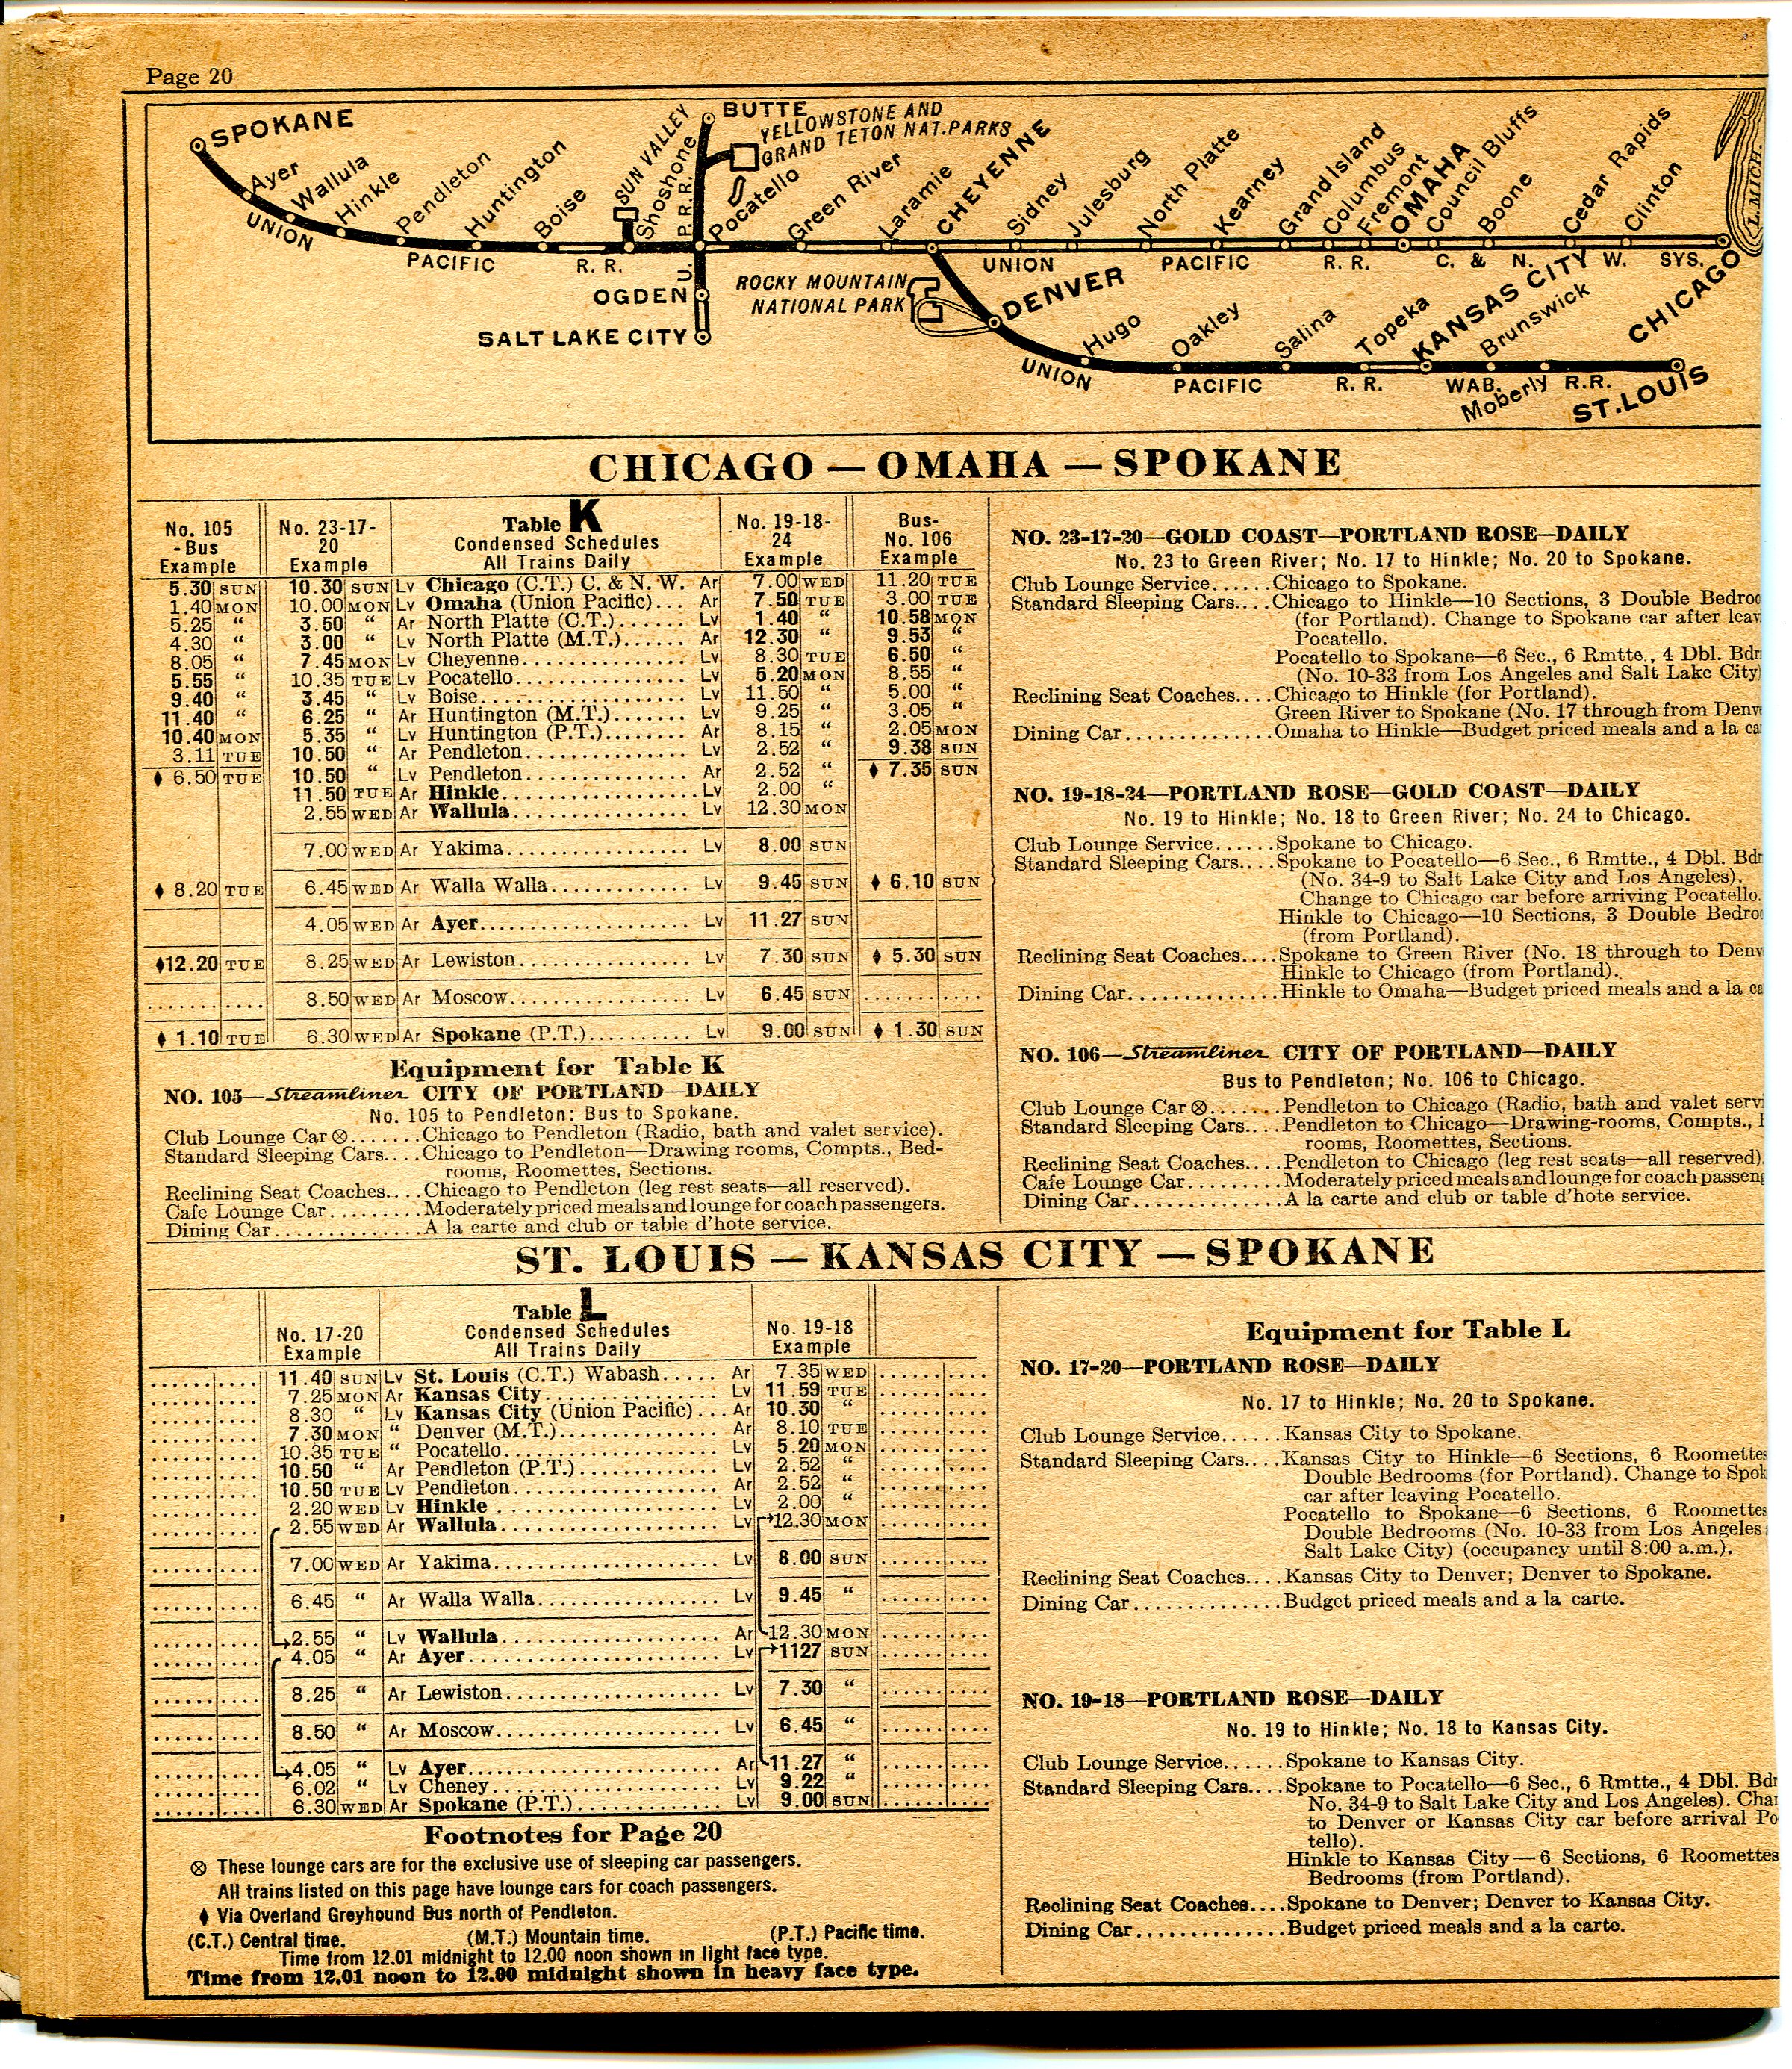 Page 20
SPOKANE
Ayer
Wallula
Hinkle
Pendleton
Huntington
Boise
SUN VALLEY
Shoshone
BUTTE
YELLOWSTONE AND
GRAND TETON NAT. PARKS
Pocatello
Green River
Laramie
CHEYENNE
Sidney
Julesburg
North Platte
Kearney
Grand Island
Columbus
Fremont
OMAHA
Council Bluffs
Boone
Cedar Rapids
Clinton
L. MICH.
UNION PACIFIC R. R.
U. P. R. R.
OGDEN
SALT LAKE CITY
ROCKY MOUNTAIN
NATIONAL PARK
UNION PACIFIC R. R. C. & N. W. SYS.
CHICAGO
DENVER
Hugo
Oakley
Salina
Topeka
KANSAS CITY
Brunswick
UNION PACIFIC R. R. WAB. R.R.
Moberly
ST. LOUIS
CHICAGO — OMAHA — SPOKANE
No. 105 -Bus Example | No. 23-17-20 Example | Table K Condensed Schedules All Trains Daily | No. 19-18-24 Example | Bus- No. 106 Example
5.30 SUN 10.30 SUN Lv Chicago (C.T.) C. & N. W. Ar 7.00 WED 11.20 TUE
1.40 MON 10.00 MON Lv Omaha (Union Pacific)... Ar 7.50 TUE 3.00 TUE
5.25 “ 3.50 “ Ar North Platte (C.T.)...... Lv 1.40 “ 10.58 MON
4.30 “ 3.00 “ Lv North Platte (M.T.)...... Ar 12.30 “ 9.53 “
8.05 “ 7.45 MON Lv Cheyenne............... Lv 8.30 TUE 6.50 “
5.55 “ 10.35 TUE Lv Pocatello............... Lv 5.20 MON 8.55 “
9.40 “ 3.45 “ Lv Boise................... Lv 11.50 “ 5.00 “
11.40 “ 6.25 “ Ar Huntington (M.T.)....... Lv 9.25 “ 3.05 “
10.40 MON 5.35 “ Lv Huntington (P.T.)........ Ar 8.15 “ 2.05 MON
3.11 TUE 10.50 “ Ar Pendleton............... Lv 2.52 “ 9.38 SUN
♦ 6.50 TUE 10.50 “ Lv Pendleton............... Ar 2.52 “ ♦ 7.35 SUN
11.50 TUE Ar Hinkle.................. Lv 2.00 “
2.55 WED Ar Wallula................ Lv 12.30 MON
7.00 WED Ar Yakima................. Lv 8.00 SUN
♦ 8.20 TUE 6.45 WED Ar Walla Walla............. Lv 9.45 SUN ♦ 6.10 SUN
4.05 WED Ar Ayer.................... Lv 11.27 SUN
♦12.20 TUE 8.25 WED Ar Lewiston................ Lv 7.30 SUN ♦ 5.30 SUN
8.50 WED Ar Moscow................. Lv 6.45 SUN
♦ 1.10 TUE 6.30 WED Ar Spokane (P.T.).......... Lv 9.00 SUN ♦ 1.30 SUN
Equipment for Table K
NO. 105—Streamliner CITY OF PORTLAND—DAILY
No. 105 to Pendleton: Bus to Spokane.
Club Lounge Car ⊗.......Chicago to Pendleton (Radio, bath and valet service).
Standard Sleeping Cars....Chicago to Pendleton—Drawing rooms, Compts., Bed-
rooms, Roomettes, Sections.
Reclining Seat Coaches....Chicago to Pendleton (leg rest seats—all reserved).
Cafe Lounge Car.........Moderately priced meals and lounge for coach passengers.
Dining Car..............A la carte and club or table d'hote service.
NO. 23-17-20—GOLD COAST—PORTLAND ROSE—DAILY
No. 23 to Green River; No. 17 to Hinkle; No. 20 to Spokane.
Club Lounge Service......Chicago to Spokane.
Standard Sleeping Cars....Chicago to Hinkle—10 Sections, 3 Double
(for Portland). Change to Spokane car after
Pocatello.
Pocatello to Spokane—6 Sec., 6 Rmtte., 4 Dbl.
(No. 10-33 from Los Angeles and Salt Lake City
Reclining Seat Coaches....Chicago to Hinkle (for Portland).
Green River to Spokane (No. 17 through from
Dining Car..............Omaha to Hinkle—Budget priced meals and a la
NO. 19-18-24—PORTLAND ROSE—GOLD COAST—DAILY
No. 19 to Hinkle; No. 18 to Green River; No. 24 to Chicago.
Club Lounge Service......Spokane to Chicago.
Standard Sleeping Cars....Spokane to Pocatello—6 Sec., 6 Rmtte., 4 Dbl.
(No. 34-9 to Salt Lake City and Los Angeles).
Change to Chicago car before arriving Pocatello.
Hinkle to Chicago—10 Sections, 3 Double
(from Portland).
Reclining Seat Coaches....Spokane to Green River (No. 18 through to
Hinkle to Chicago (from Portland).
Dining Car..............Hinkle to Omaha—Budget priced meals and a la
NO. 106—Streamliner CITY OF PORTLAND—DAILY
Bus to Pendleton; No. 106 to Chicago.
Club Lounge Car ⊗.......Pendleton to Chicago (Radio, bath and valet
Standard Sleeping Cars....Pendleton to Chicago—Drawing-rooms, Compts.,
rooms, Roomettes, Sections.
Reclining Seat Coaches....Pendleton to Chicago (leg rest seats—all reserved)
Cafe Lounge Car.........Moderately priced meals and lounge for coach
Dining Car..............A la carte and club or table d'hote service.
ST. LOUIS — KANSAS CITY — SPOKANE
No. 17-20 Example | Table L Condensed Schedules All Trains Daily | No. 19-18 Example
11.40 SUN Lv St. Louis (C.T.) Wabash..... Ar 7.35 WED
7.25 MON Ar Kansas City............... Lv 11.59 TUE
8.30 “ Lv Kansas City (Union Pacific)... Ar 10.30 “
7.30 MON “ Denver (M.T.)............. Ar 8.10 TUE
10.35 TUE “ Pocatello................. Lv 5.20 MON
10.50 “ Ar Pendleton (P.T.)........... Lv 2.52 “
10.50 TUE Lv Pendleton................ Ar 2.52 “
2.20 WED Lv Hinkle .................. Lv 2.00 “
2.55 WED Ar Wallula.................. Lv 12.30 MON
7.00 WED Ar Yakima.................. Lv 8.00 SUN
6.45 “ Ar Walla Walla.............. Lv 9.45 “
2.55 “ Lv Wallula.................. Ar 12.30 MON
4.05 “ Ar Ayer..................... Lv 1127 SUN
8.25 “ Ar Lewiston................. Lv 7.30 “
8.50 “ Ar Moscow.................. Lv 6.45 “
4.05 “ Lv Ayer..................... Ar 11.27 “
6.02 “ Lv Cheney.................. Lv 9.22 “
6.30 WED Ar Spokane (P.T.)........... Lv 9.00 SUN
Footnotes for Page 20
⊗ These lounge cars are for the exclusive use of sleeping car passengers.
All trains listed on this page have lounge cars for coach passengers.
♦ Via Overland Greyhound Bus north of Pendleton.
(C.T.) Central time. (M.T.) Mountain time. (P.T.) Pacific time.
Time from 12.01 midnight to 12.00 noon shown in light face type.
Time from 12.01 noon to 12.00 midnight shown in heavy face type.
Equipment for Table L
NO. 17-20—PORTLAND ROSE—DAILY
No. 17 to Hinkle; No. 20 to Spokane.
Club Lounge Service......Kansas City to Spokane.
Standard Sleeping Cars....Kansas City to Hinkle—6 Sections, 6 Roomettes
Double Bedrooms (for Portland). Change to
car after leaving Pocatello.
Pocatello to Spokane—6 Sections, 6 Roomettes
Double Bedrooms (No. 10-33 from Los Angeles
Salt Lake City) (occupancy until 8:00 a.m.).
Reclining Seat Coaches....Kansas City to Denver; Denver to Spokane.
Dining Car..............Budget priced meals and a la carte.
NO. 19-18—PORTLAND ROSE—DAILY
No. 19 to Hinkle; No. 18 to Kansas City.
Club Lounge Service......Spokane to Kansas City.
Standard Sleeping Cars....Spokane to Pocatello—6 Sec., 6 Rmtte., 4 Dbl.
No. 34-9 to Salt Lake City and Los Angeles).
to Denver or Kansas City car before arrival Po
tello).
Hinkle to Kansas City — 6 Sections, 6 Roomettes
Bedrooms (from Portland).
Reclining Seat Coaches....Spokane to Denver; Denver to Kansas City.
Dining Car..............Budget priced meals and a la carte.